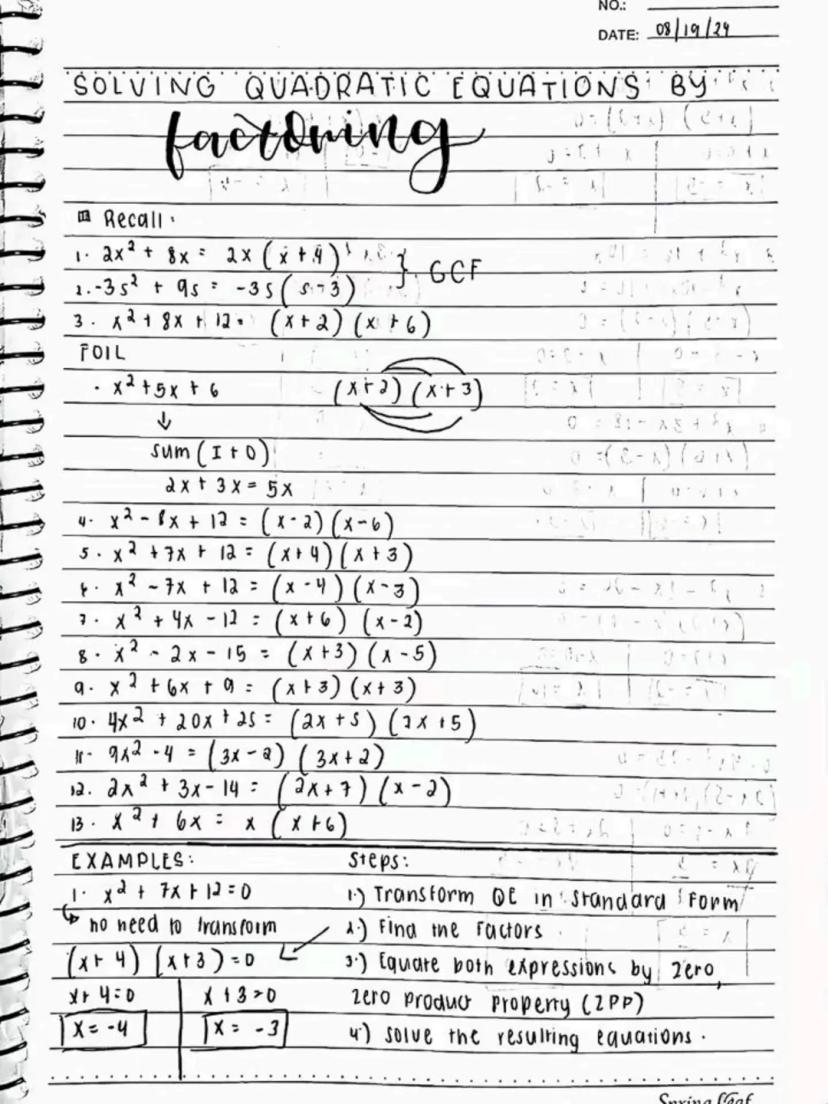 NO.:
DATE: 08/19/24
SOLVING QUADRATIC EQUATIONS BY
factoring
Recall:
1. 2x² + 8x = 2x (x + 4)
2. -3s² + 9s = -3s (s - 3) } GCF
3. x² + 8x + 12 = (x + 2) (x + 6)
FOIL
· x² + 5x + 6 (x + 2) (x + 3)
↓
sum (I + O)
2x + 3x = 5x
4. x² - 8x + 12 = (x - 2) (x - 6)
5. x² + 7x + 12 = (x + 4) (x + 3)
6. x² - 7x + 12 = (x - 4) (x - 3)
7. x² + 4x - 12 = (x + 6) (x - 2)
8. x² - 2x - 15 = (x + 3) (x - 5)
9. x² + 6x + 9 = (x + 3) (x + 3)
10. 4x² + 20x + 25 = (2x + 5) (2x + 5)
11. 9x² - 4 = (3x - 2) (3x + 2)
12. 2x² + 3x - 14 = (2x + 7) (x - 2)
13. x² + 6x = x (x + 6)
EXAMPLES:
1. x² + 7x + 12 = 0
↳ no need to transform
(x + 4) (x + 3) = 0
x + 4 = 0 x + 3 = 0
x = -4 x = -3
Steps:
1.) Transform QE in standard Form
2.) Find the Factors
3.) Equate both expressions by zero,
zero product property (ZPP)
4.) solve the resulting equations.
Spring Leaf